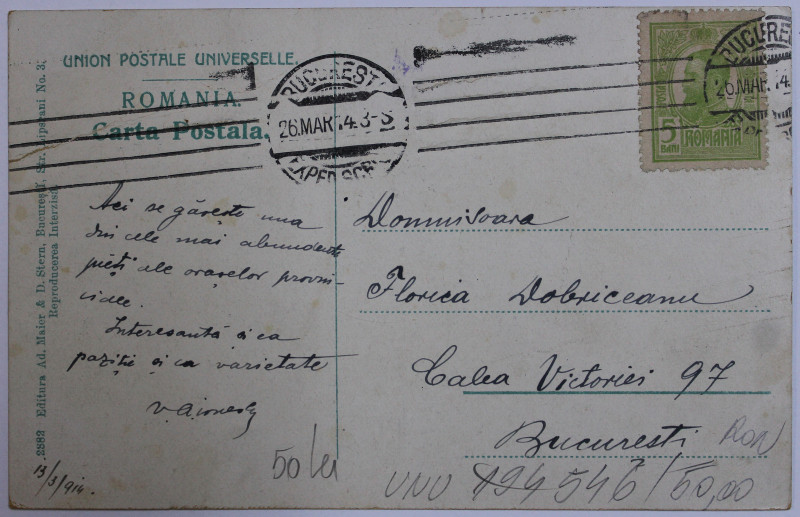 UNION POSTALE UNIVERSELLE.
ROMANIA.
Carta Postala.
BUCUREST
26.MAR.14.3-S
BUCURE
26.MAR.14.
5
BANI
ROMANIA
2382 Editura Ad. Maier & D. Stern, Bucureşti, Str. Lipscani No. 3.
Reproducerea Interzisă
Aci se găsește una
din cele mai abundente
pieți ale orașelor provin-
ciale.
Interesantă și ca
poziție și ca varietate
13/3/914.
Domnisoara
Florica Dobriceanu
Calea Victoriei 97
Bucuresti
50 lei
UNU 194546/50,00
RON